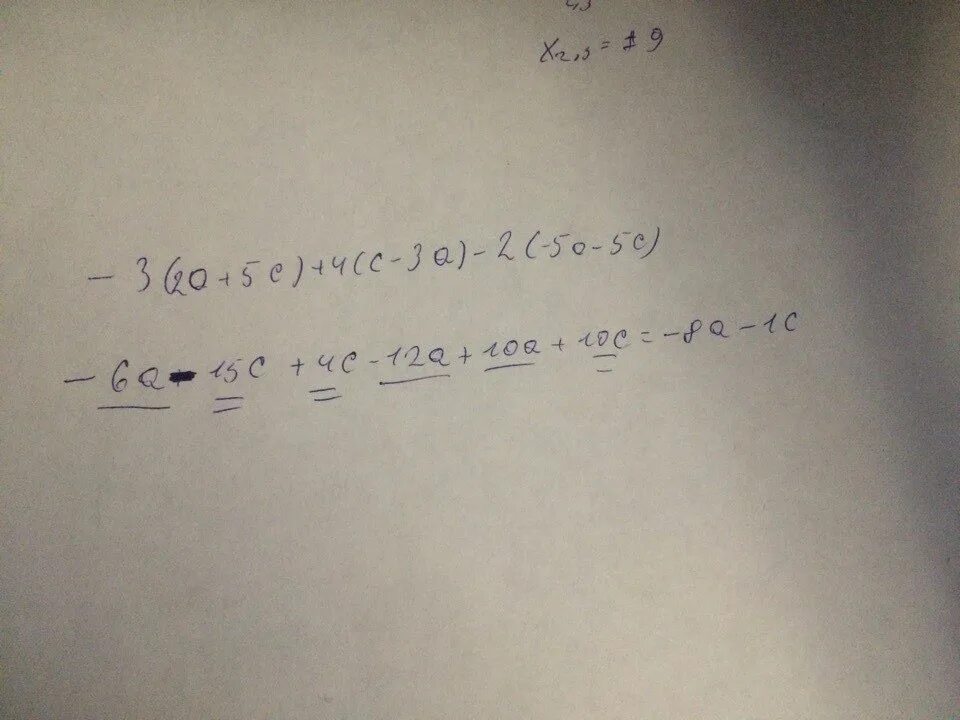 x₂,₃ = ±9
- 3(2a+5c)+4(c-3a)-2(-5a-5c)
- 6a - 15c + 4c - 12a + 10a + 10c = -8a - 1c